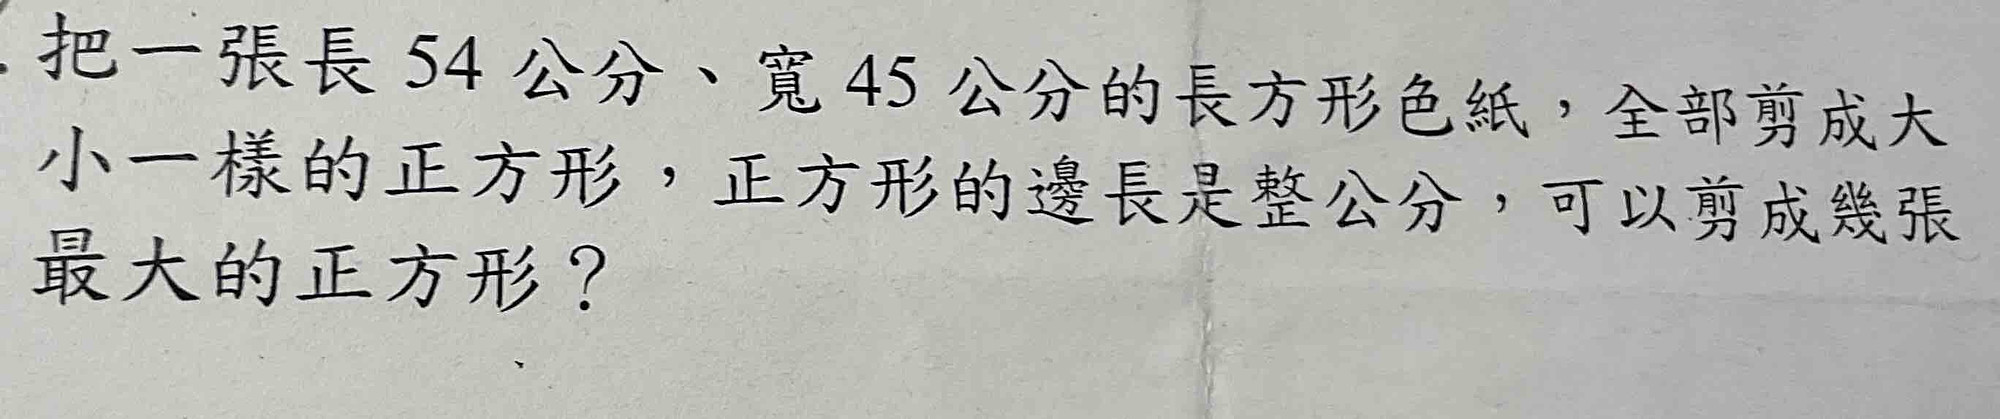 把一張長 54 公分、寬 45 公分的長方形色紙，全部剪成大
小一樣的正方形，正方形的邊長是整公分，可以剪成幾張
最大的正方形？